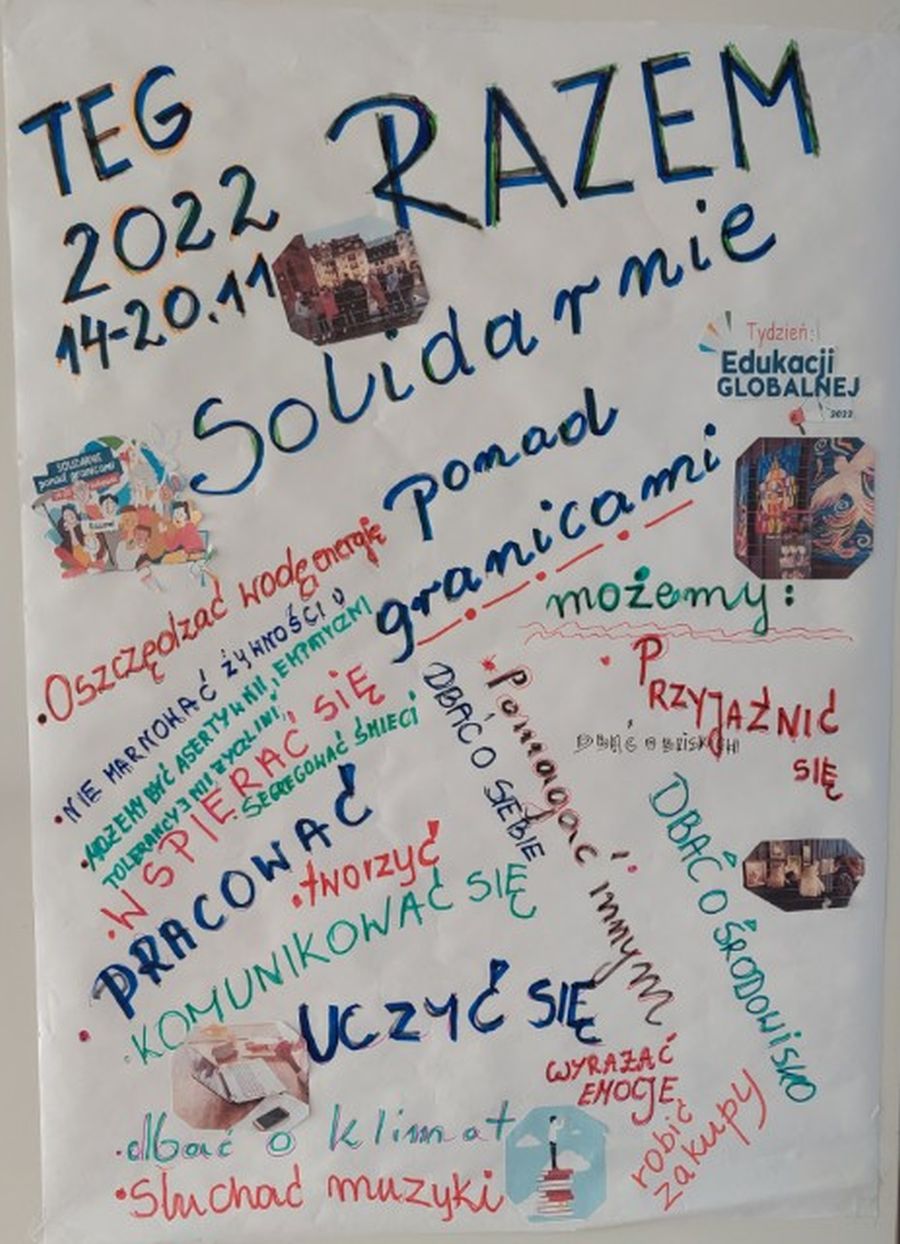 TEG
2022
14-20.11
RAZEM
Solidarnie
ponad
granicami
Tydzień
Edukacji
GLOBALNEJ
2022
SOLIDARNIE
ponad granicami
możemy:
• Oszczędzać wodę energię
• NIE MARNOWAĆ ŻYWNOŚCI
• MOŻEMY BYĆ ASERTYWNI, EMPATYZM
TOLERANCYJNI I ŻYCZLIWI
• WSPIERAĆ SIĘ
• SEGREGOWAĆ ŚMIECI
PRACOWAĆ
• tworzyć
• KOMUNIKOWAĆ SIĘ
UCZYĆ SIĘ
DBAĆ O SIEBIE
• Pomagać innym
• PRZYJAŹNIĆ
SIĘ
DBAĆ O BLISKICH
DBAĆ O ŚRODOWISKO
WYRAŻAĆ
EMOCJE
robić
zakupy
• dbać o klimat
• Słuchać muzyki